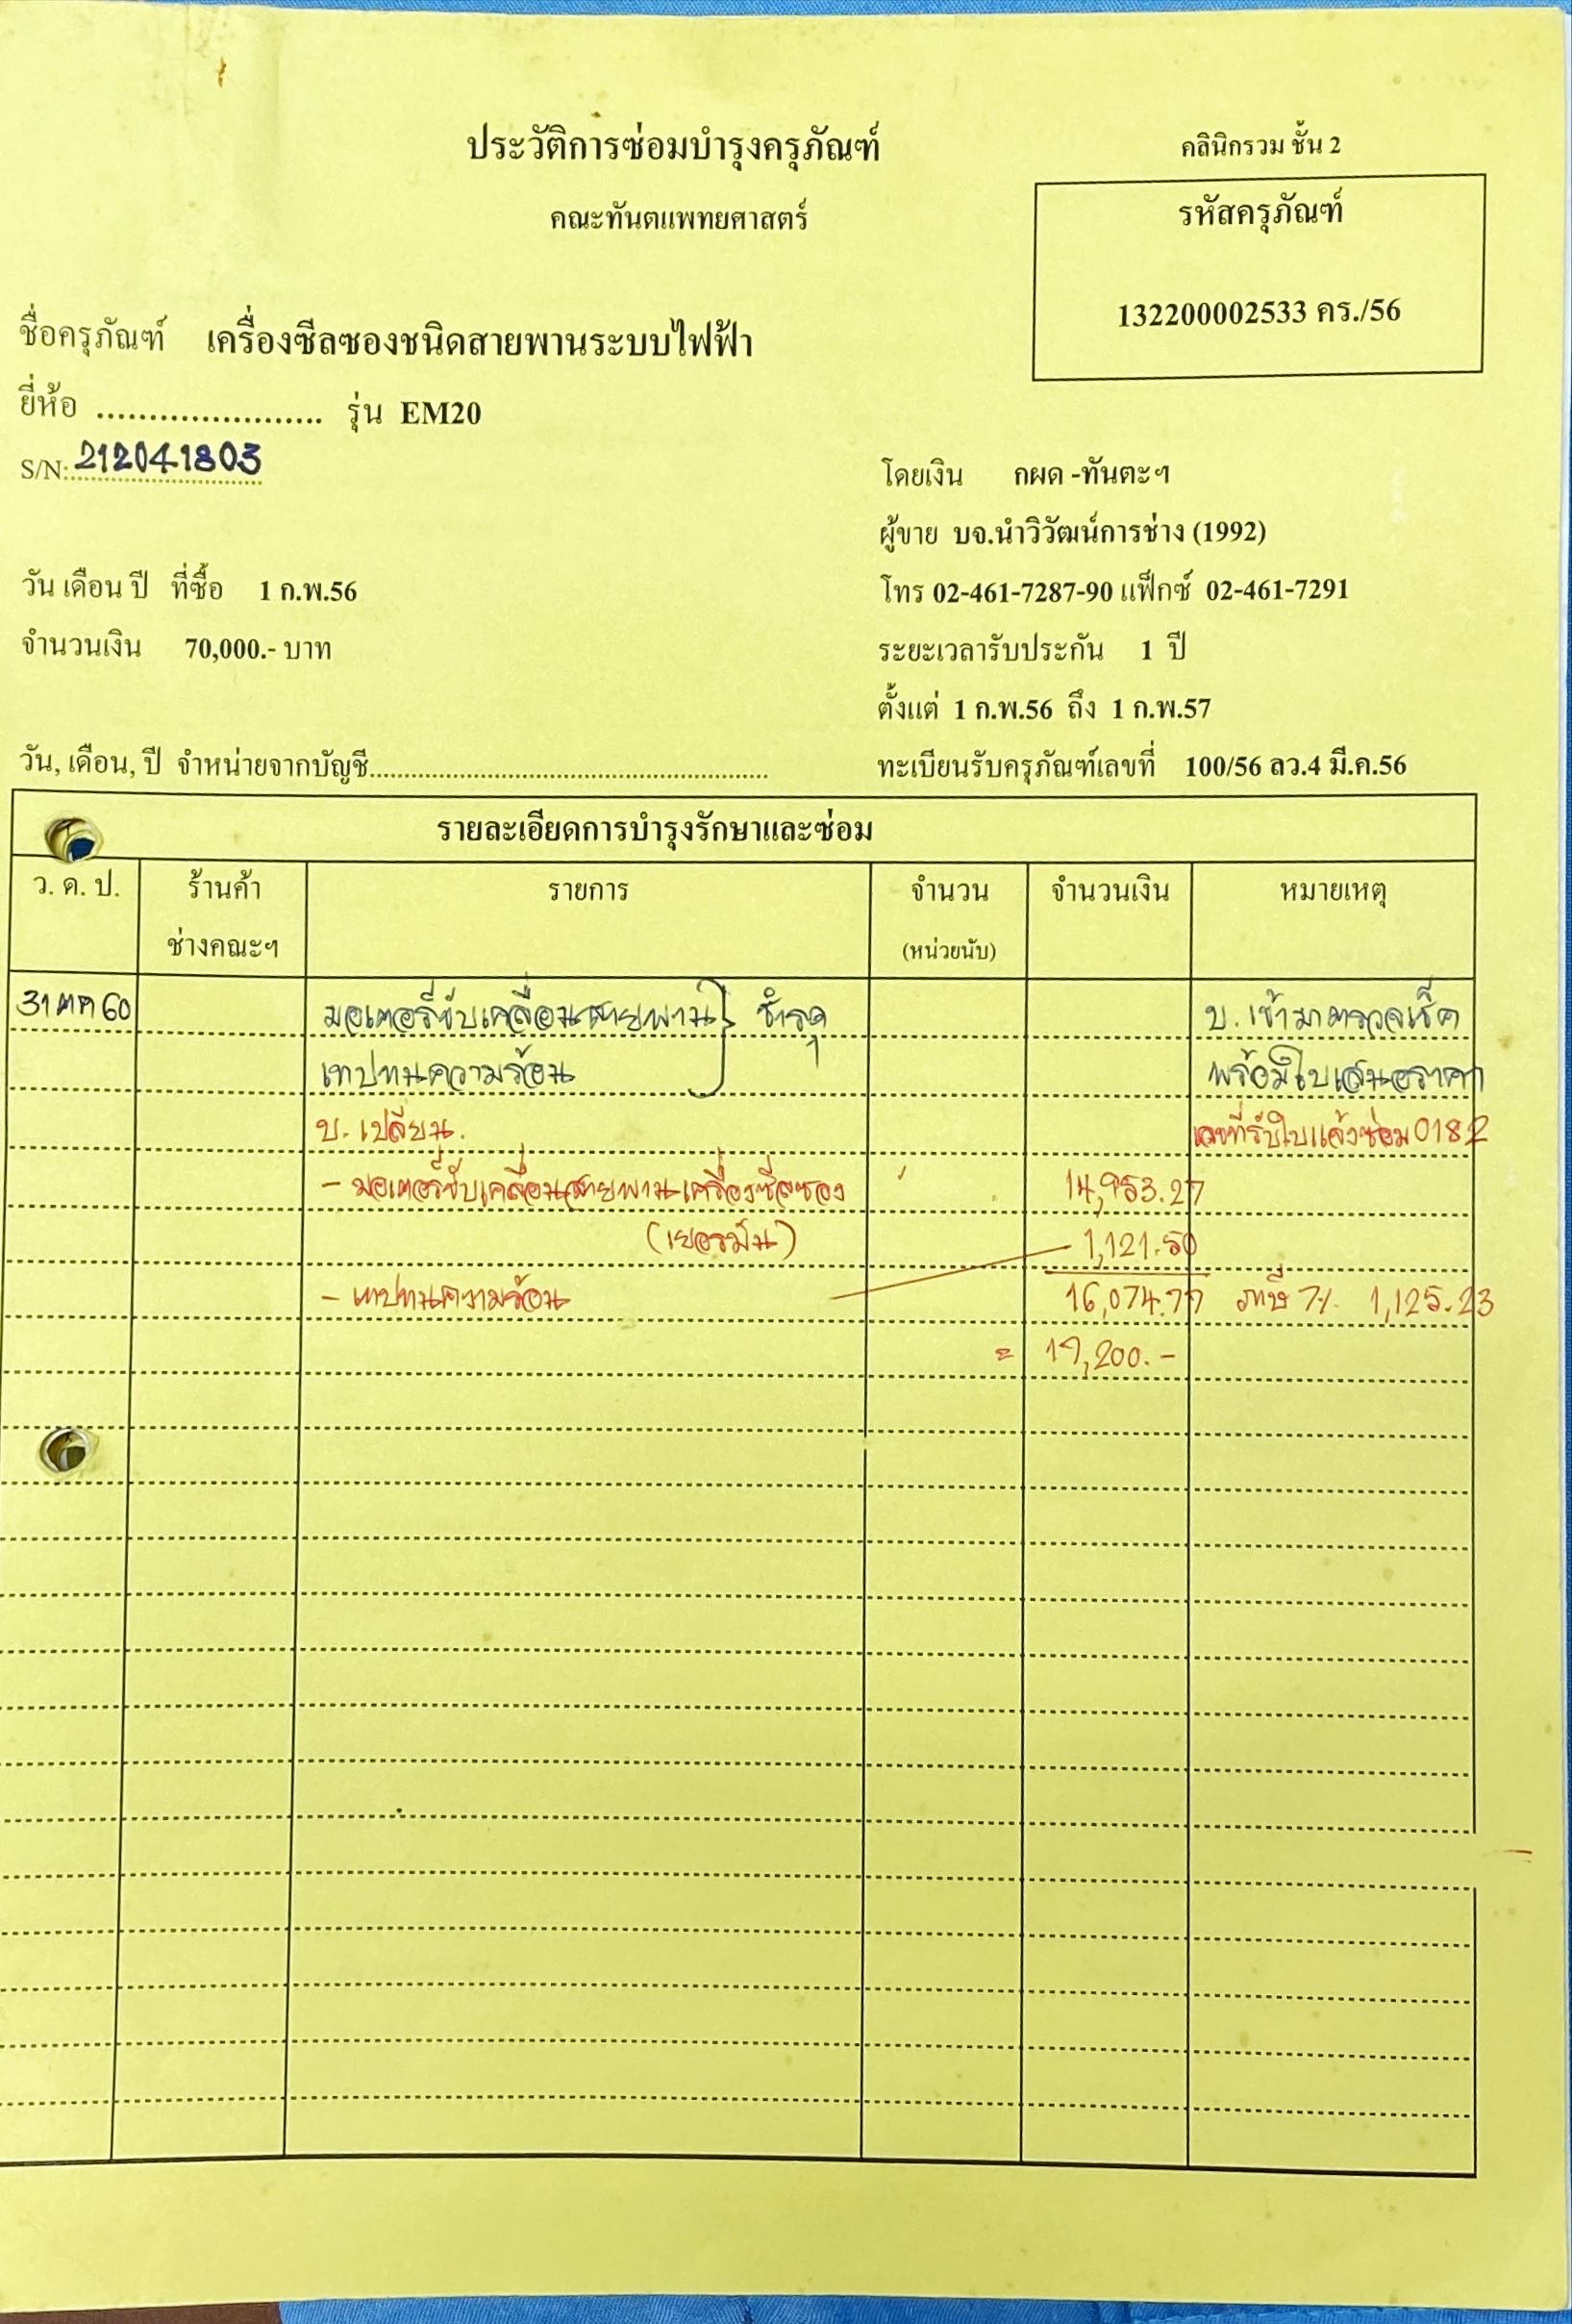 ประวัติการซ่อมบำรุงครุภัณฑ์
คลินิกรวม ชั้น 2
คณะทันตแพทยศาสตร์
รหัสครุภัณฑ์
132200002533 คร./56
ชื่อครุภัณฑ์ เครื่องซีลซองชนิดสายพานระบบไฟฟ้า
ยี่ห้อ ...................... รุ่น EM20
S/N: 212041803
โดยเงิน กผด -ทันตะฯ
ผู้ขาย บจ.นำวิวัฒน์การช่าง (1992)
วัน เดือน ปี ที่ซื้อ 1 ก.พ.56
โทร 02-461-7287-90 แฟ็กซ์ 02-461-7291
จำนวนเงิน 70,000.- บาท
ระยะเวลารับประกัน 1 ปี
ตั้งแต่ 1 ก.พ.56 ถึง 1 ก.พ.57
วัน, เดือน, ปี จำหน่ายจากบัญชี..........................................................
ทะเบียนรับครุภัณฑ์เลขที่ 100/56 ลว.4 มี.ค.56
รายละเอียดการบำรุงรักษาและซ่อม
ว. ด. ป. ร้านค้า รายการ จำนวน จำนวนเงิน หมายเหตุ
ช่างคณะฯ (หน่วยนับ)
31 ตค 60 มอเตอร์ขับเคลื่อนสายพาน } ชำรุด บ. เข้ามาตรวจเช็ค
เทปทนความร้อน พร้อมใบเสนอราคา
บ. เปลี่ยน. เลขที่รับใบแจ้งซ่อม 0182
- มอเตอร์ขับเคลื่อนสายพานเครื่องซีลซอง 14,953.27
(เยอรมัน) 1,121.50
- เทปทนความร้อน 16,074.77 ภาษี 7% 1,125.23
= 17,200.-